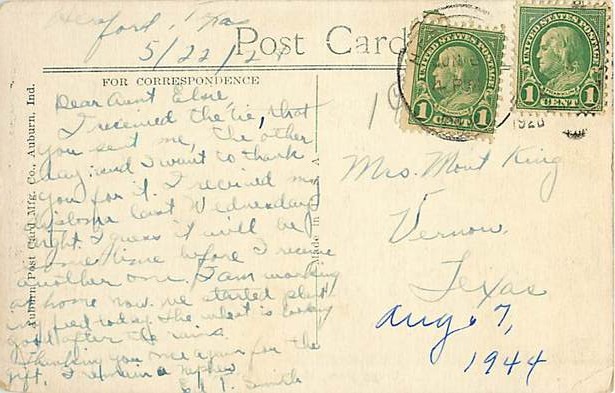 Hereford Texas
5/22/24
Post Card
FOR CORRESPONDENCE
Auburn Post Card Mfg. Co., Auburn, Ind.
Made in U. S. A.
Dear Aunt Elsie,
I received the tie, that
you sent me, the other
day and I want to thank
you for it. I received my
diploma last Wednesday
night. I guess it will be
some time before I receive
another one. I am working
at home now. we started plant
ing feed today. The wheat is looking
good after the rains.
Thanking you once again for the
gift, I remain a nephew
Smith
UNITED STATES POSTAGE
1 CENT 1
UNITED STATES POSTAGE
FRANKLIN
1 CENT 1
Mrs. Mont King
Vernon,
Texas
Aug 7,
1944